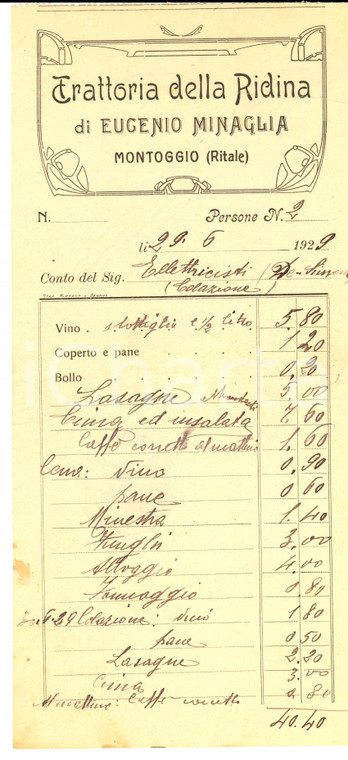 Trattoria della Ridina
di EUGENIO MINAGLIA
MONTOGGIO (Ritale)
N. Persone N. 2
li 29. 6 1929
Conto del Sig. Elettricisti
(Colazione)
Vino 1 bottiglia e 1/2 litro 5.80
Coperto e pane 1 20
Bollo 0.20
Lasagne 5.00
Cima ed insalata 7.60
Caffè corretto al mattino 1.60
Cena: Vino 0.90
pane 0 60
Minestra 1.40
Funghi 3.00
Alloggio 4.00
Formaggio 0 80
30.6.29 Colazione: vino 1 80
pane 0 50
Lasagne 2.20
Cima 3.00
Mattino: Caffè corretto 0 80
40.40